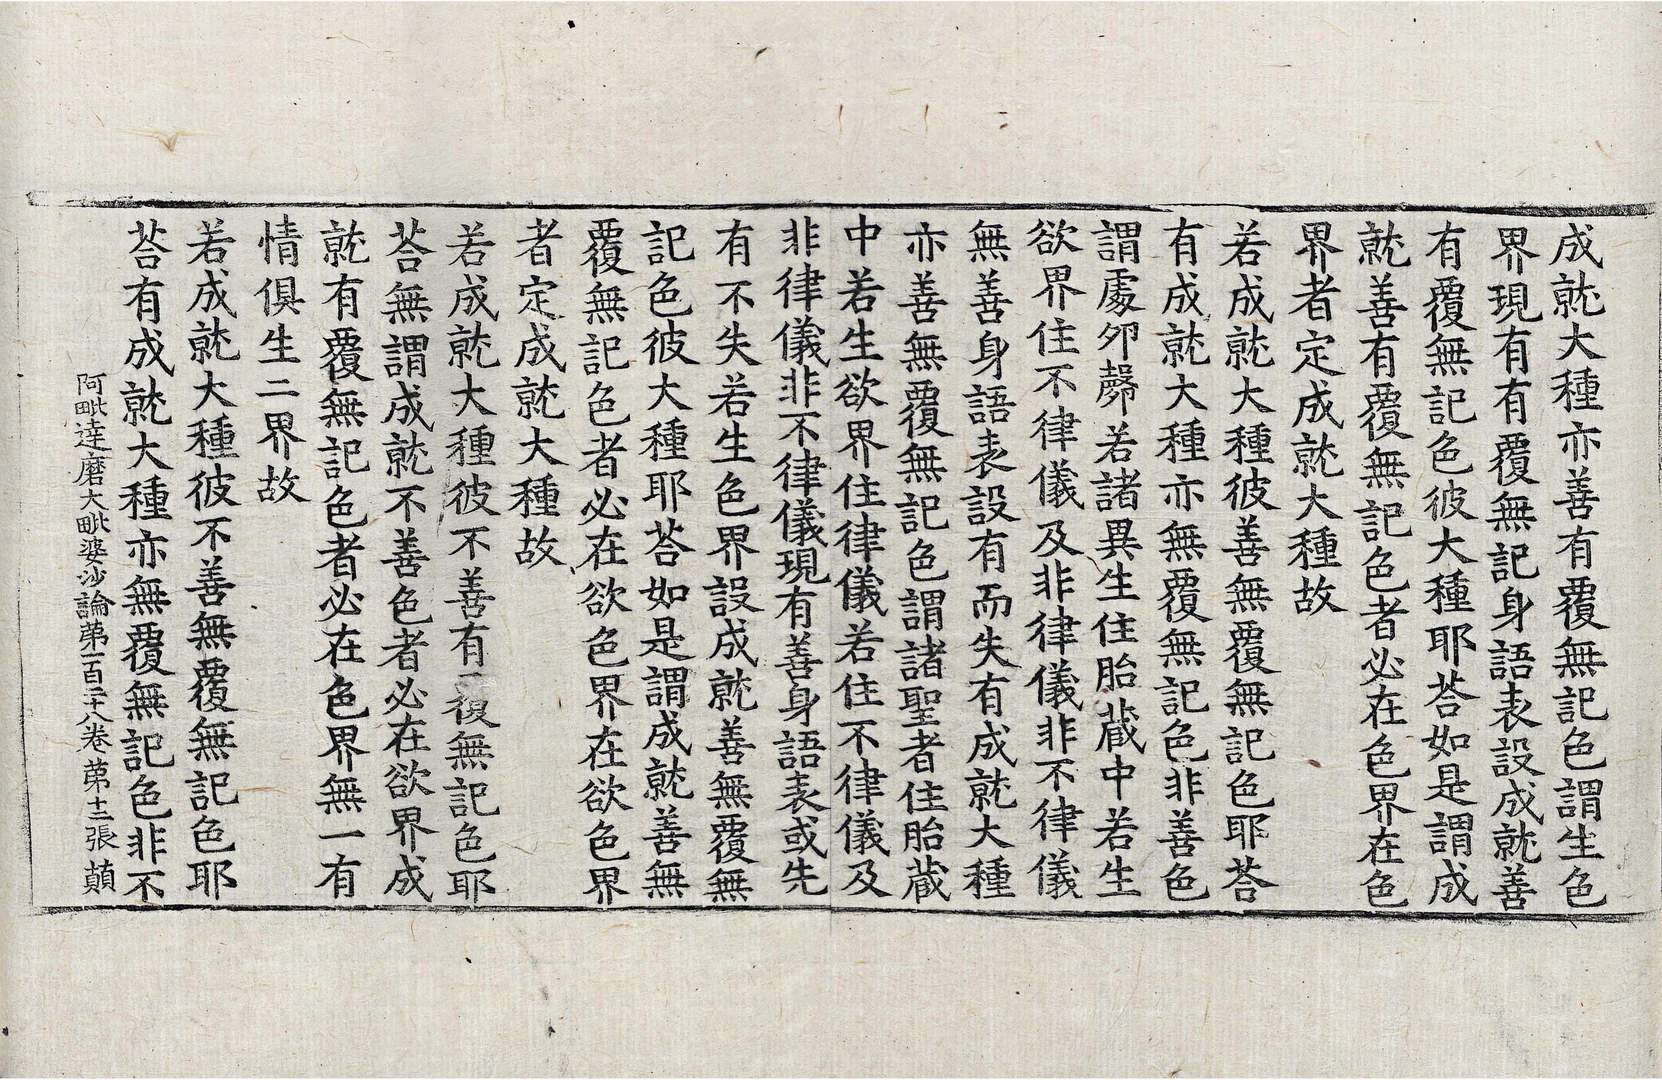 成就大種亦善有覆無記色謂生色
界現有有覆無記身語表設成就善
有覆無記色彼大種耶荅如是謂成
就善有覆無記色者必在色界在色
界者定成就大種故
若成就大種彼善無覆無記色耶荅
有成就大種亦無覆無記色非善色
謂處夘㲉若諸異生住胎藏中若生
欲界住不律儀及非律儀非不律儀
無善身語表設有而失有成就大種
亦善無覆無記色謂諸聖者住胎藏
中若生欲界住律儀若住不律儀及
非律儀非不律儀現有善身語表或先
有不失若生色界設成就善無覆無
記色彼大種耶荅如是謂成就善無
覆無記色者必在欲色界在欲色界
者定成就大種故
若成就大種彼不善有覆無記色耶
荅無謂成就不善色者必在欲界成
就有覆無記色者必在色界無一有
情俱生二界故
若成就大種彼不善無覆無記色耶
荅有成就大種亦無覆無記色非不
阿毗達磨大毗婆沙論第一百二十八卷 第十二張 顛